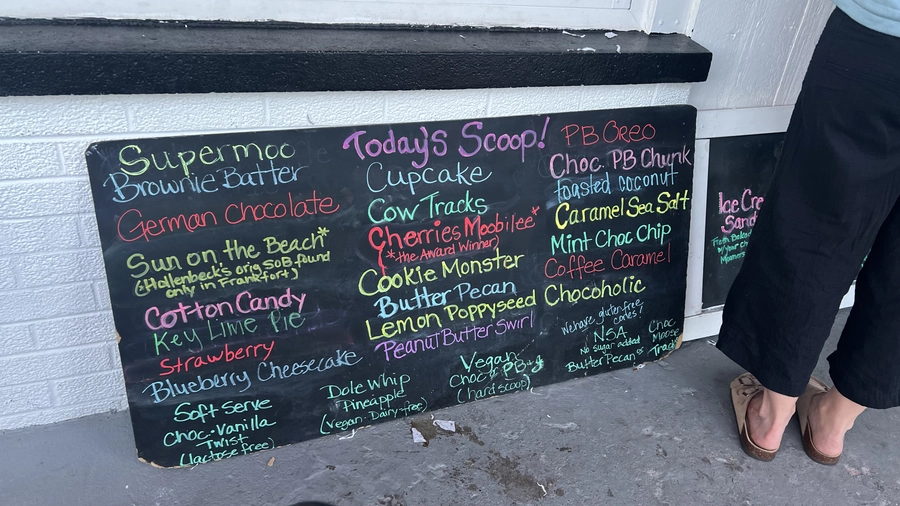 Today's Scoop!
Supermoo
Brownie Batter
German Chocolate
Sun on the Beach*
(*Hollenbeck's orig SOB found
only in Frankfort)
Cotton Candy
Key Lime Pie
Strawberry
Blueberry Cheesecake
Soft Serve
Choc-Vanilla
Twist
(lactose free)
Cupcake
Cow Tracks
Cherries Moobilee*
(*the Award Winner)
Cookie Monster
Butter Pecan
Lemon Poppyseed
Peanut Butter Swirl
Dole Whip
Pineapple
(vegan-Dairy-free)
Vegan
Choc
(hard scoop)
PB Oreo
Choc. PB Chunk
toasted coconut
Caramel Sea Salt
Mint Choc Chip
Coffee Caramel
Chocoholic
We have gluten free
cones!
NSA
No sugar added
Butter Pecan or
Choc
Moose
Tracks
Ice Cre
Sand